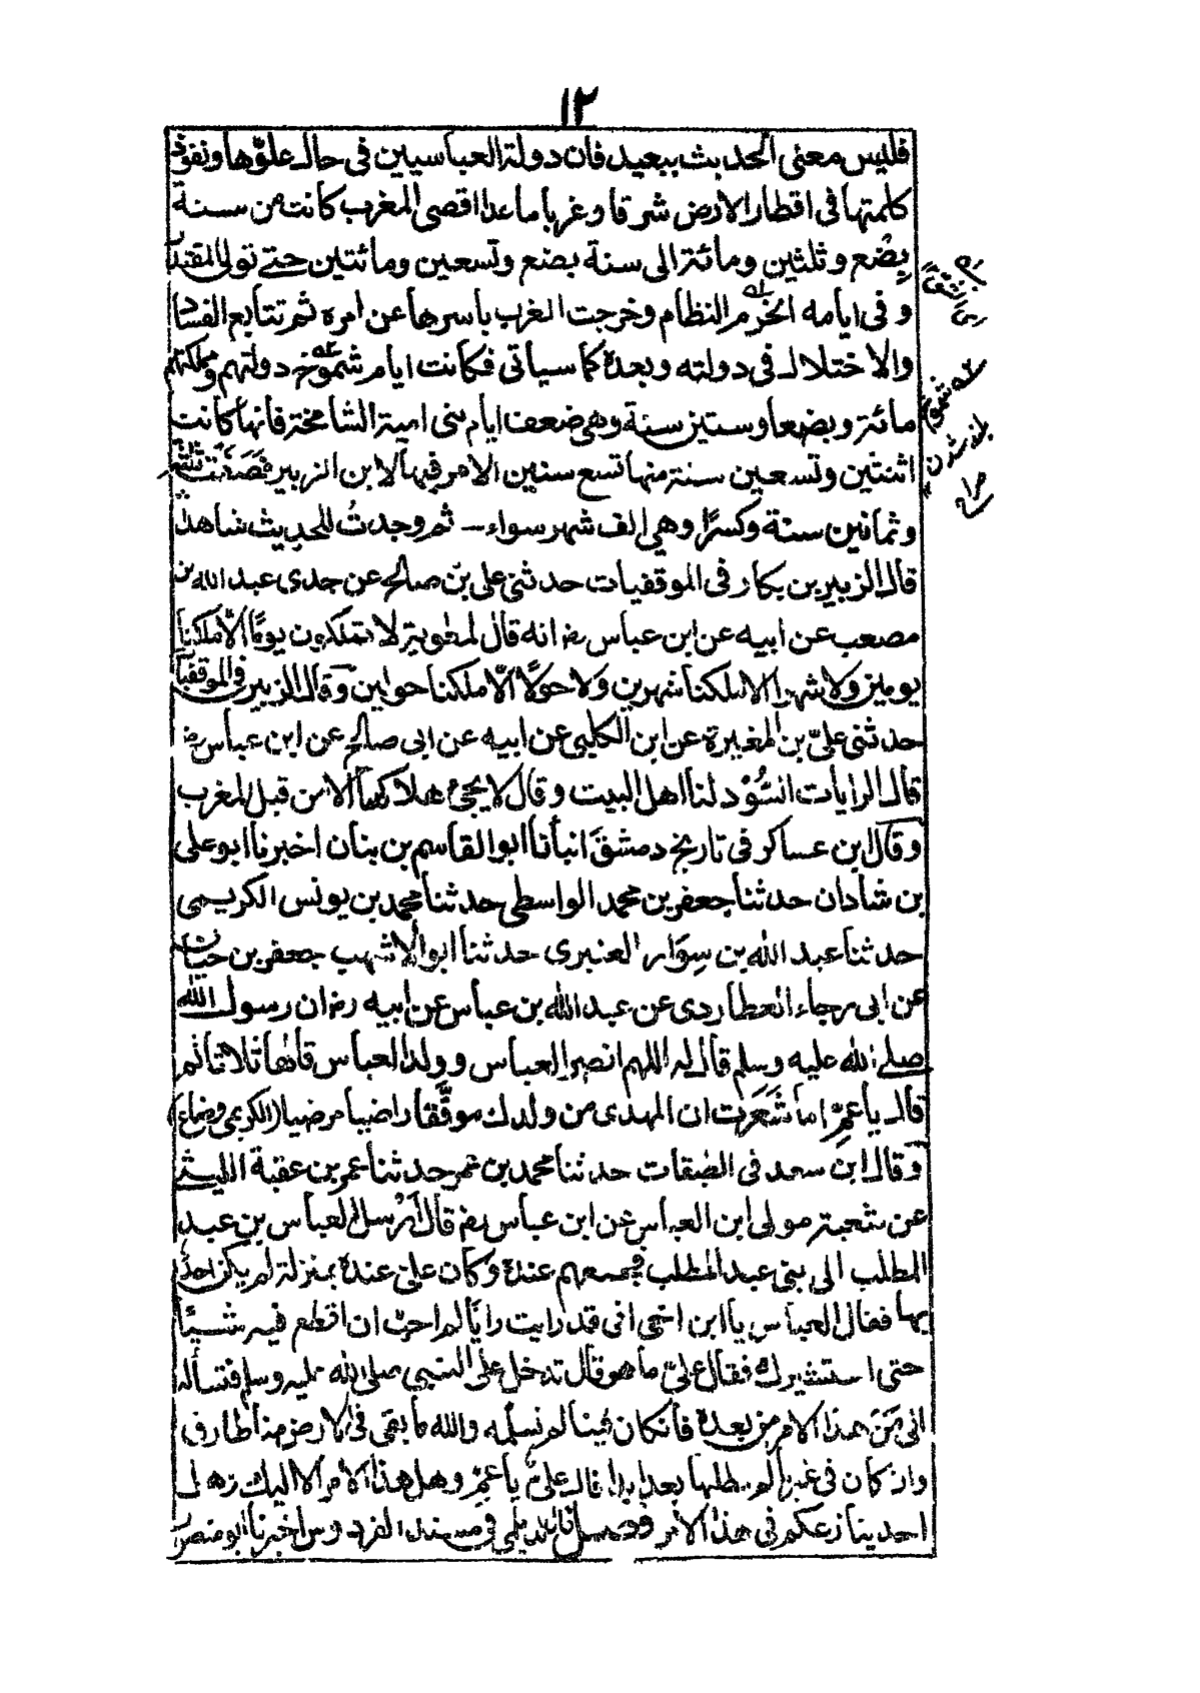 ١٢
فليس معنى الحديث ببعيد فان دولة العباسيين في حال علوّها ونفوذ
كلمتها في اقطار الارض شرقا وغربا ماعدا اقصى المغرب كانت من سنة
بِضْع وثلثين ومائة الى سنة بضع وتسعين ومائتين حتے تولى المقتدر
وفي ايامه انخرم النظام وخرجت المغرب باسرها عن امره ثم تتابع الفساد
والاختلال في دولته وبعده كما سياتي فكانت ايام شموخ دولتهم ومملكتهم
مائة وبضعا وستين سنة وهي ضعف ايام بني امية الشامخة فانها كانت
اثنتين وتسعين سنة منها تسع سنين الامر فيها لابن الزبير فصَفَتْ ثلثة
وثمانين سنة وكسرًا وهي الف شهر سواء — ثم وجدتُ للحديث شاهدا
قال الزبير بن بكار في الموقفيات حدثني علي بن صالح عن جدي عبد الله بن
مصعب عن ابيه عن ابن عباس رضـ انه قال لمعٰوية لا تملكون يومًا الّا ملكنا
يومين ولا شهرا الا ملكنا شهرين ولا حولًا الّا ملكنا حولين وقال الزبير في الموقفيات
حدثني عليّ بن المغيرة عن ابن الكلبي عن ابيه عن ابي صالح عن ابن عباس رضـ
قال الرايات السُّوْد لنا اهل البيت وقال لا يجيء هلاكها الا من قبل المغرب
وقال ابن عساكر في تاريخ دمشق انبأنا ابو القاسم بن بنان اخبرنا ابو علي
بن شاذان حدثنا جعفر بن محمد الواسطي حدثنا محمد بن يونس الكريمي
حدثنا عبد الله بن سِوَار العنبري حدثنا ابو الاشهب جعفر بن حيان
عن ابي رجاء العطاردي عن عبد الله بن عباس عن ابيه رضـ ان رسول الله
صلى الله عليه وسلم قال له اللهم انصر العباس وولد العباس قالها ثلاثا ثم
قال يا عمِّ اما شَعَرت ان المهدي من ولدك موفَّقا راضيا مرضيا (الكريمي وضاع)
وقال ابن سعد في الطبقات حدثنا محمد بن عمر حدثنا عمر بن عقبة الليثے
عن شعبة مولى ابن العباس عن ابن عباس رضـ قال ارسل العباس بن عبد
المطلب الى بني عبد المطلب فجمعهم عنده وكان علي عنده بمنزلة لم يكن احد
بها فقال العباس يا ابن اخي اني قد رايت رايًا لم احب ان اقطع فيه شيئا
حتى استشيرك فقال عليّ ما هو قال تدخل على النبي صلى الله عليه وسلم فتسأله
الى مَنْ هذا الامر من بعده فان كان فينا لم نسلمه والله ما بقي في الارض منا طارف
وان كان في غيرنا لم نطلبها بعدا ابدا قال عليّ يا عمِّ وهل هذا الامر الا اليك وهل
احد ينازعكم في هذا الامر الديلمي في مسند الفردوس اخبرنا ابو منصور